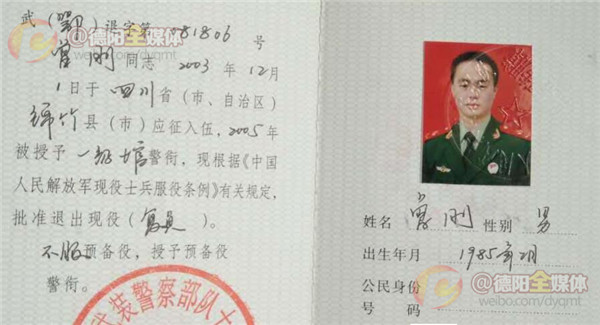 武（鄂）退字第 81806 号
同志 2003 年 12 月
1 日于 四川 省（市、自治区）
绵竹 县（市）应征入伍，2005 年
被授予 一级士官 警衔，现根据《中国
人民解放军现役士兵服役条例》有关规定，
批准退出现役（复员）。
不服 预备役，授予预备役
警衔。
武装警察部队
@德阳全媒体
weibo.com/dyqmt
姓名 刚 性别 男
出生年月 1985年 月
公民身份
号码
@德阳全媒体
weibo.com/dyqmt